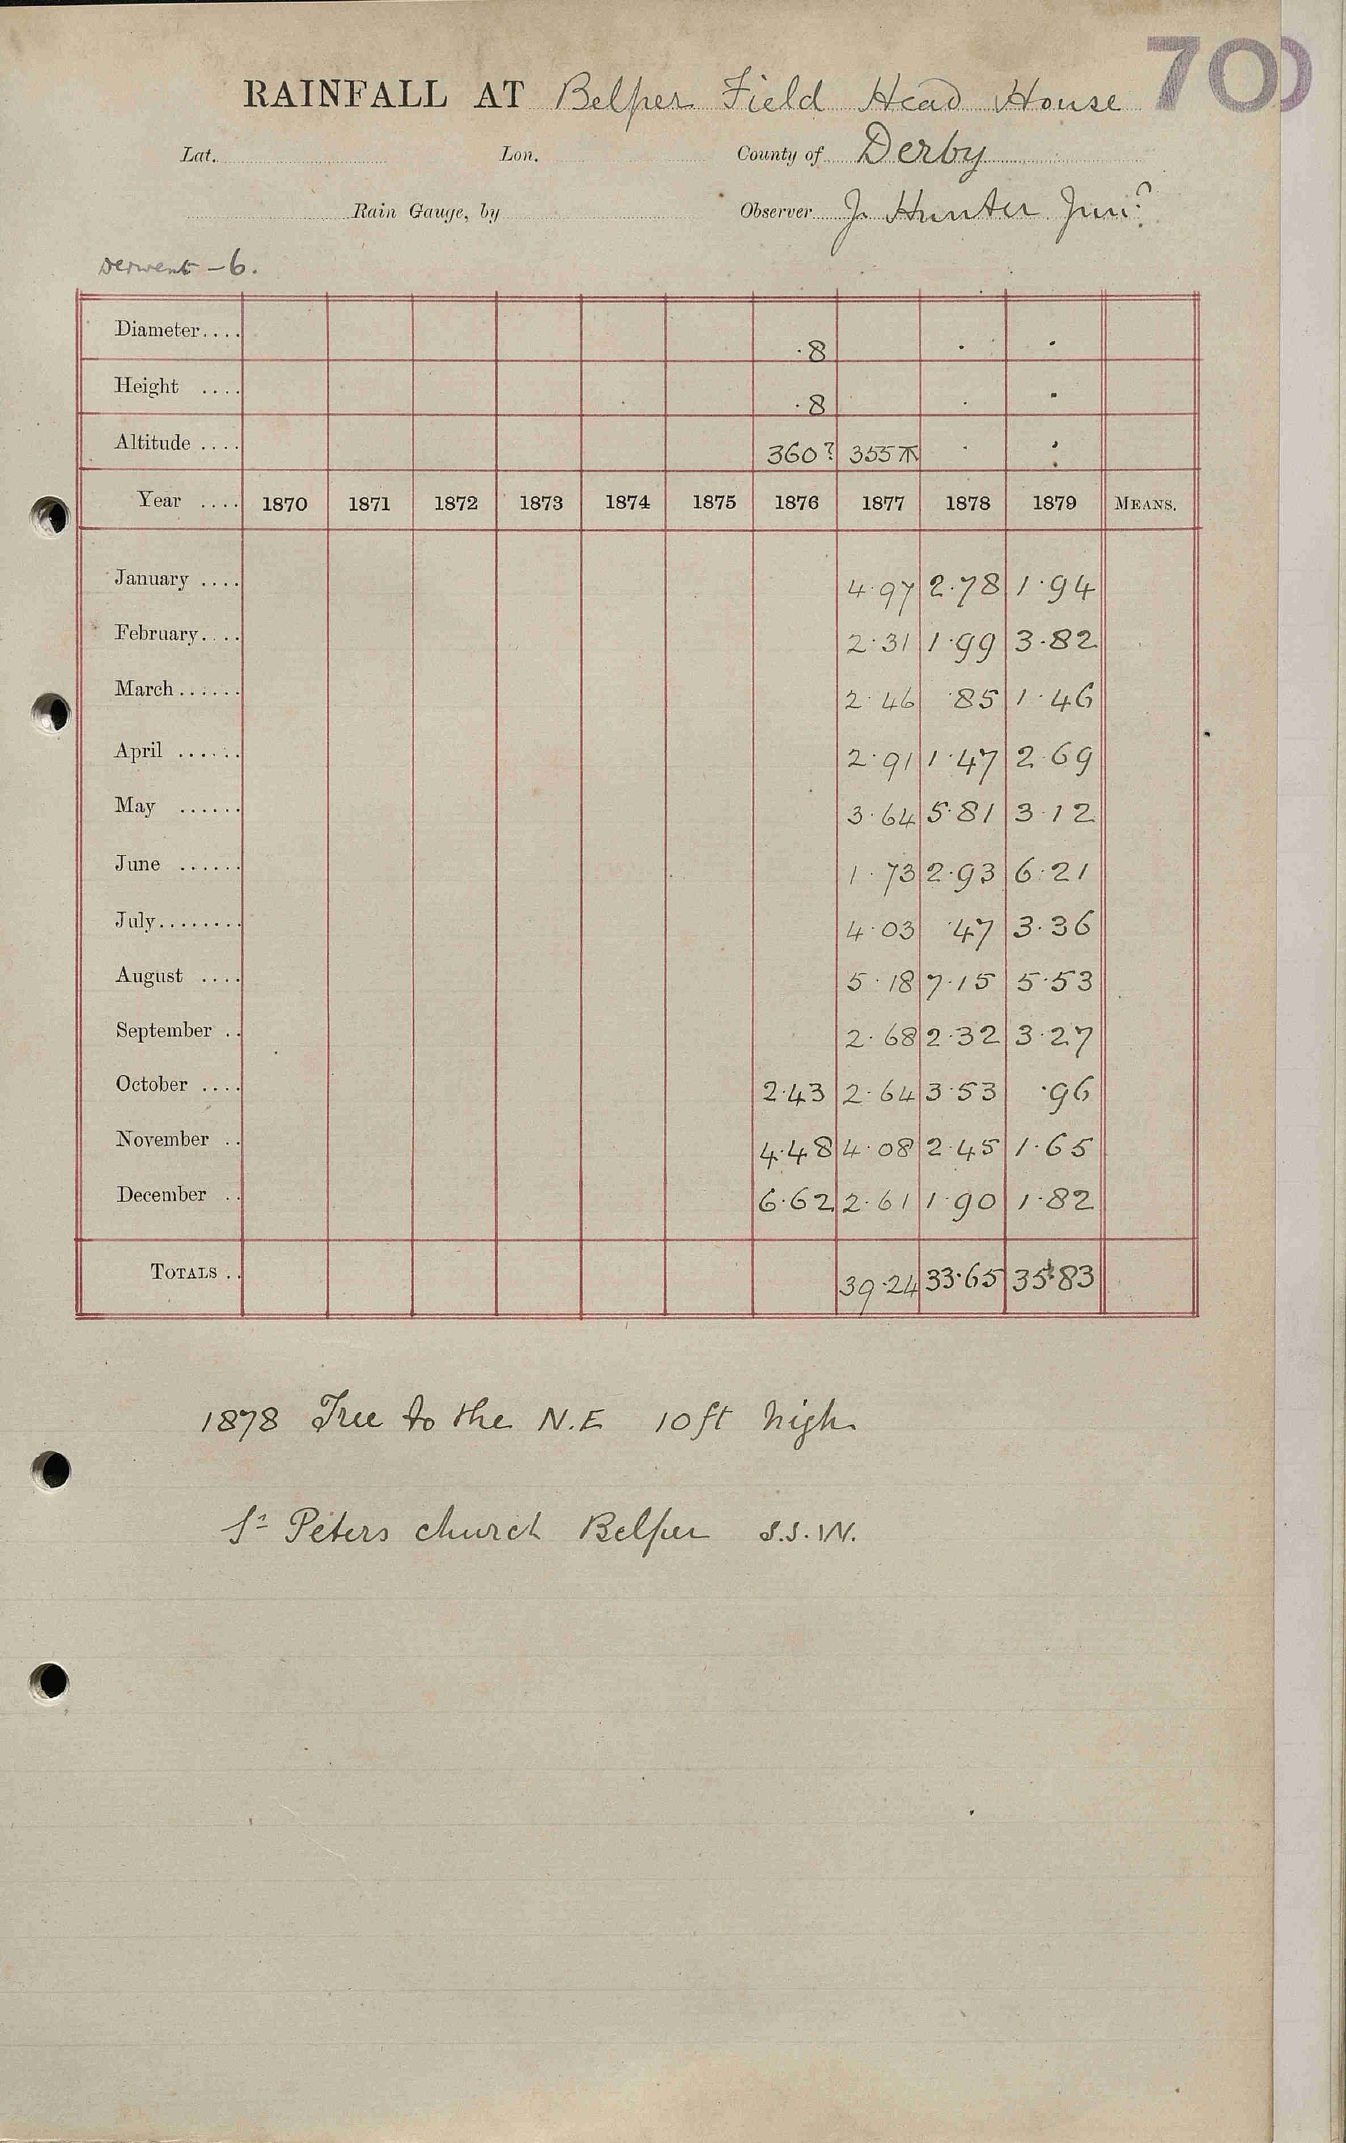 700
RAINFALL AT Belper Field Head House
Lat. Lon. County of Derby
Rain Gauge, by Observer J. Hunter Junr
Derwent - 6.
Diameter.... ·8 · ·
Height .... ·8 · ·
Altitude .... 360? 355 · :
Year .... 1870 1871 1872 1873 1874 1875 1876 1877 1878 1879 MEANS.
January .... 4·97 2·78 1·94
February.... 2·31 1·99 3·82
March...... 2·46 ·85 1·46
April ...... 2·91 1·47 2·69
May ...... 3·64 5·81 3·12
June ...... 1·73 2·93 6·21
July........ 4·03 ·47 3·36
August .... 5·18 7·15 5·53
September .. 2·68 2·32 3·27
October .... 2·43 2·64 3·53 ·96
November .. 4·48 4·08 2·45 1·65
December .. 6·62 2·61 1·90 1·82
TOTALS .. 39·24 33·65 35·83
1878 Tree to the N.E 10ft high
St Peters church Belper S.S.W.